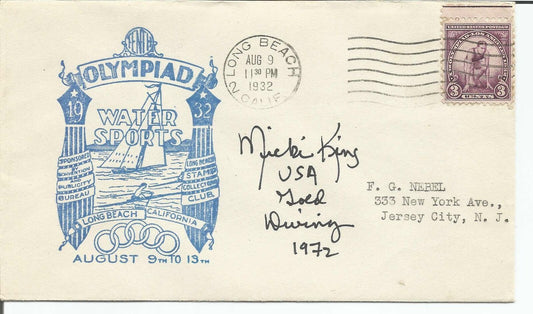 XENTH
OLYMPIAD
19 32
WATER
SPORTS
SPONSORED
BY
PUBLICITY
BUREAU
LONG BEACH
STAMP
COLLECTORS
CLUB
LONG BEACH CALIFORNIA
AUGUST 9TH TO 13TH
LONG BEACH
AUG 9
11 30 PM
1932
2 CALIF.
3 3
CENTS
Micki King
USA
Gold
Diving
1972
F. G. NEBEL
333 New York Ave.,
Jersey City, N. J.